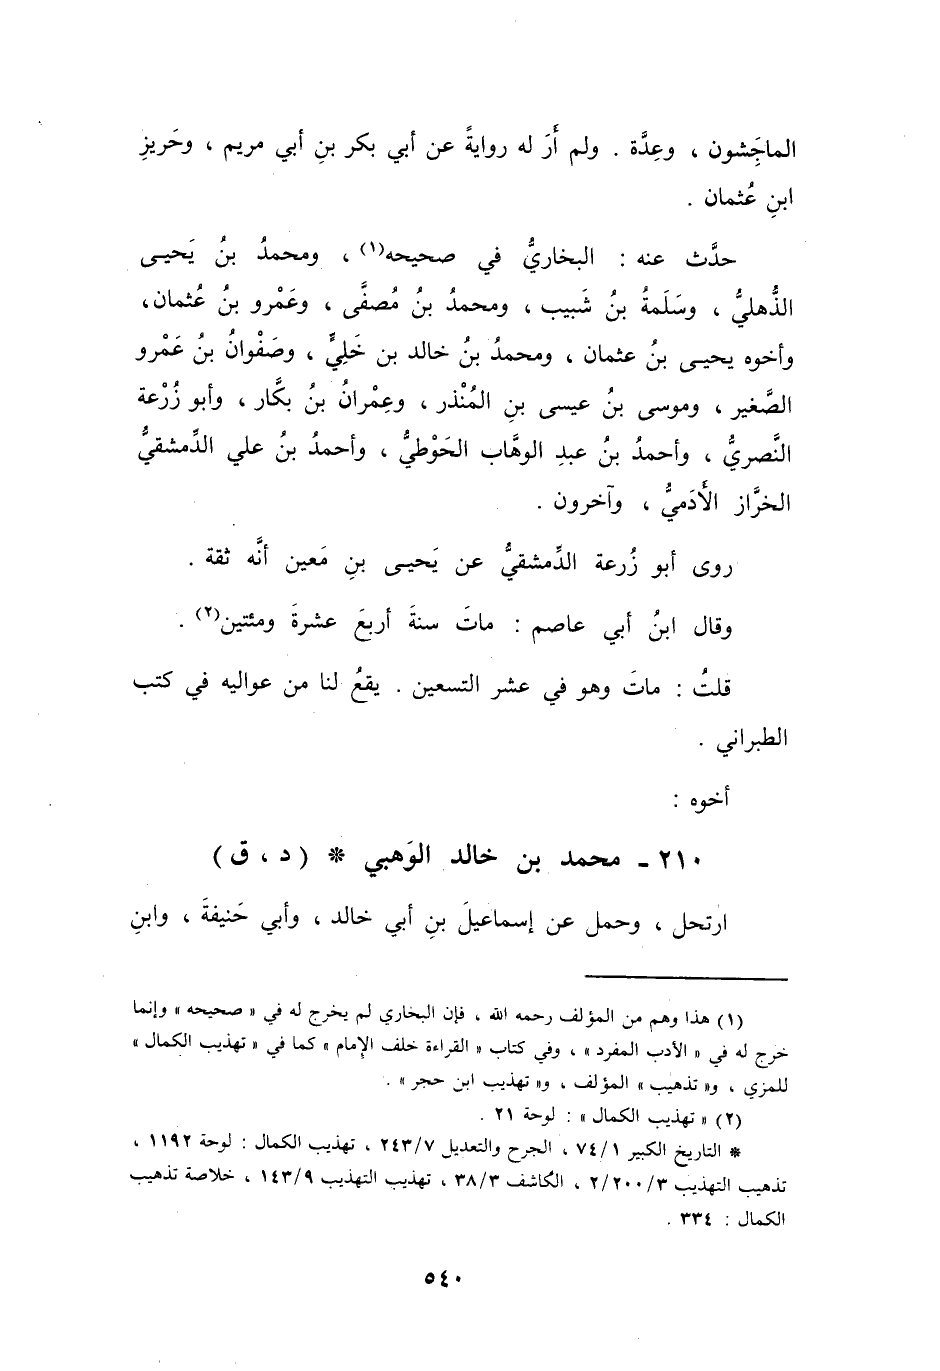 الماجَشون ، وعِدَّة . ولم أَرَ له روايةً عن أبي بكر بنِ أبي مريم ، وحَريزِ
ابنِ عُثمان .
حدَّث عنه : البخاريُّ في صحيحه(١) ، ومحمدُ بنُ يَحيـى
الذُّهليُّ ، وسَلَمةُ بنُ شَبيب ، ومحمدُ بنُ مُصفَّى ، وعَمْرو بنُ عُثمان،
وأخوه يحيـى بنُ عثمان ، ومحمدُ بنُ خالد بن خَلِيٍّ ، وصَفْوانُ بنُ عَمْرو
الصَّغير ، وموسى بنُ عيسى بنِ المُنْذر ، وعِمْرانُ بنُ بكَّار ، وأبو زُرْعة
النَّصريُّ ، وأحمدُ بنُ عبدِ الوهَّاب الحَوْطيُّ ، وأحمدُ بنُ علي الدِّمشقيُّ
الخرَّاز الأَدَميُّ ، وآخرون .
روى أبو زُرعة الدِّمشقيُّ عن يَحيـى بنِ مَعين أنَّه ثقة .
وقال ابنُ أبي عاصم : ماتَ سنةَ أربعَ عشرةَ ومئتين(٢) .
قلتُ : ماتَ وهو في عشر التسعين . يقعُ لنا من عواليه في كتب
الطبراني .
أخوه :
٢١٠ - محمد بن خالد الوَهبي * ( د ، ق )
ارتحل ، وحمل عن إسماعيلَ بنِ أبي خالد ، وأبي حَنيفةَ ، وابنِ
(١) هذا وهم من المؤلف رحمه الله ، فإن البخاري لم يخرج له في « صحيحه » وإنما
خرج له في « الأدب المفرد » ، وفي كتاب « القراءة خلف الإمام » كما في « تهذيب الكمال »
للمزي ، و« تذهيب » المؤلف ، و« تهذيب ابن حجر » .
(٢) « تهذيب الكمال » : لوحة ٢١ .
* التاريخ الكبير ٧٤/١ ، الجرح والتعديل ٢٤٣/٧ ، تهذيب الكمال : لوحة ١١٩٢ ،
تذهيب التهذيب ٢/٢٠٠/٣ ، الكاشف ٣٨/٣ ، تهذيب التهذيب ١٤٣/٩ ، خلاصة تذهيب
الكمال : ٣٣٤ .
٥٤٠